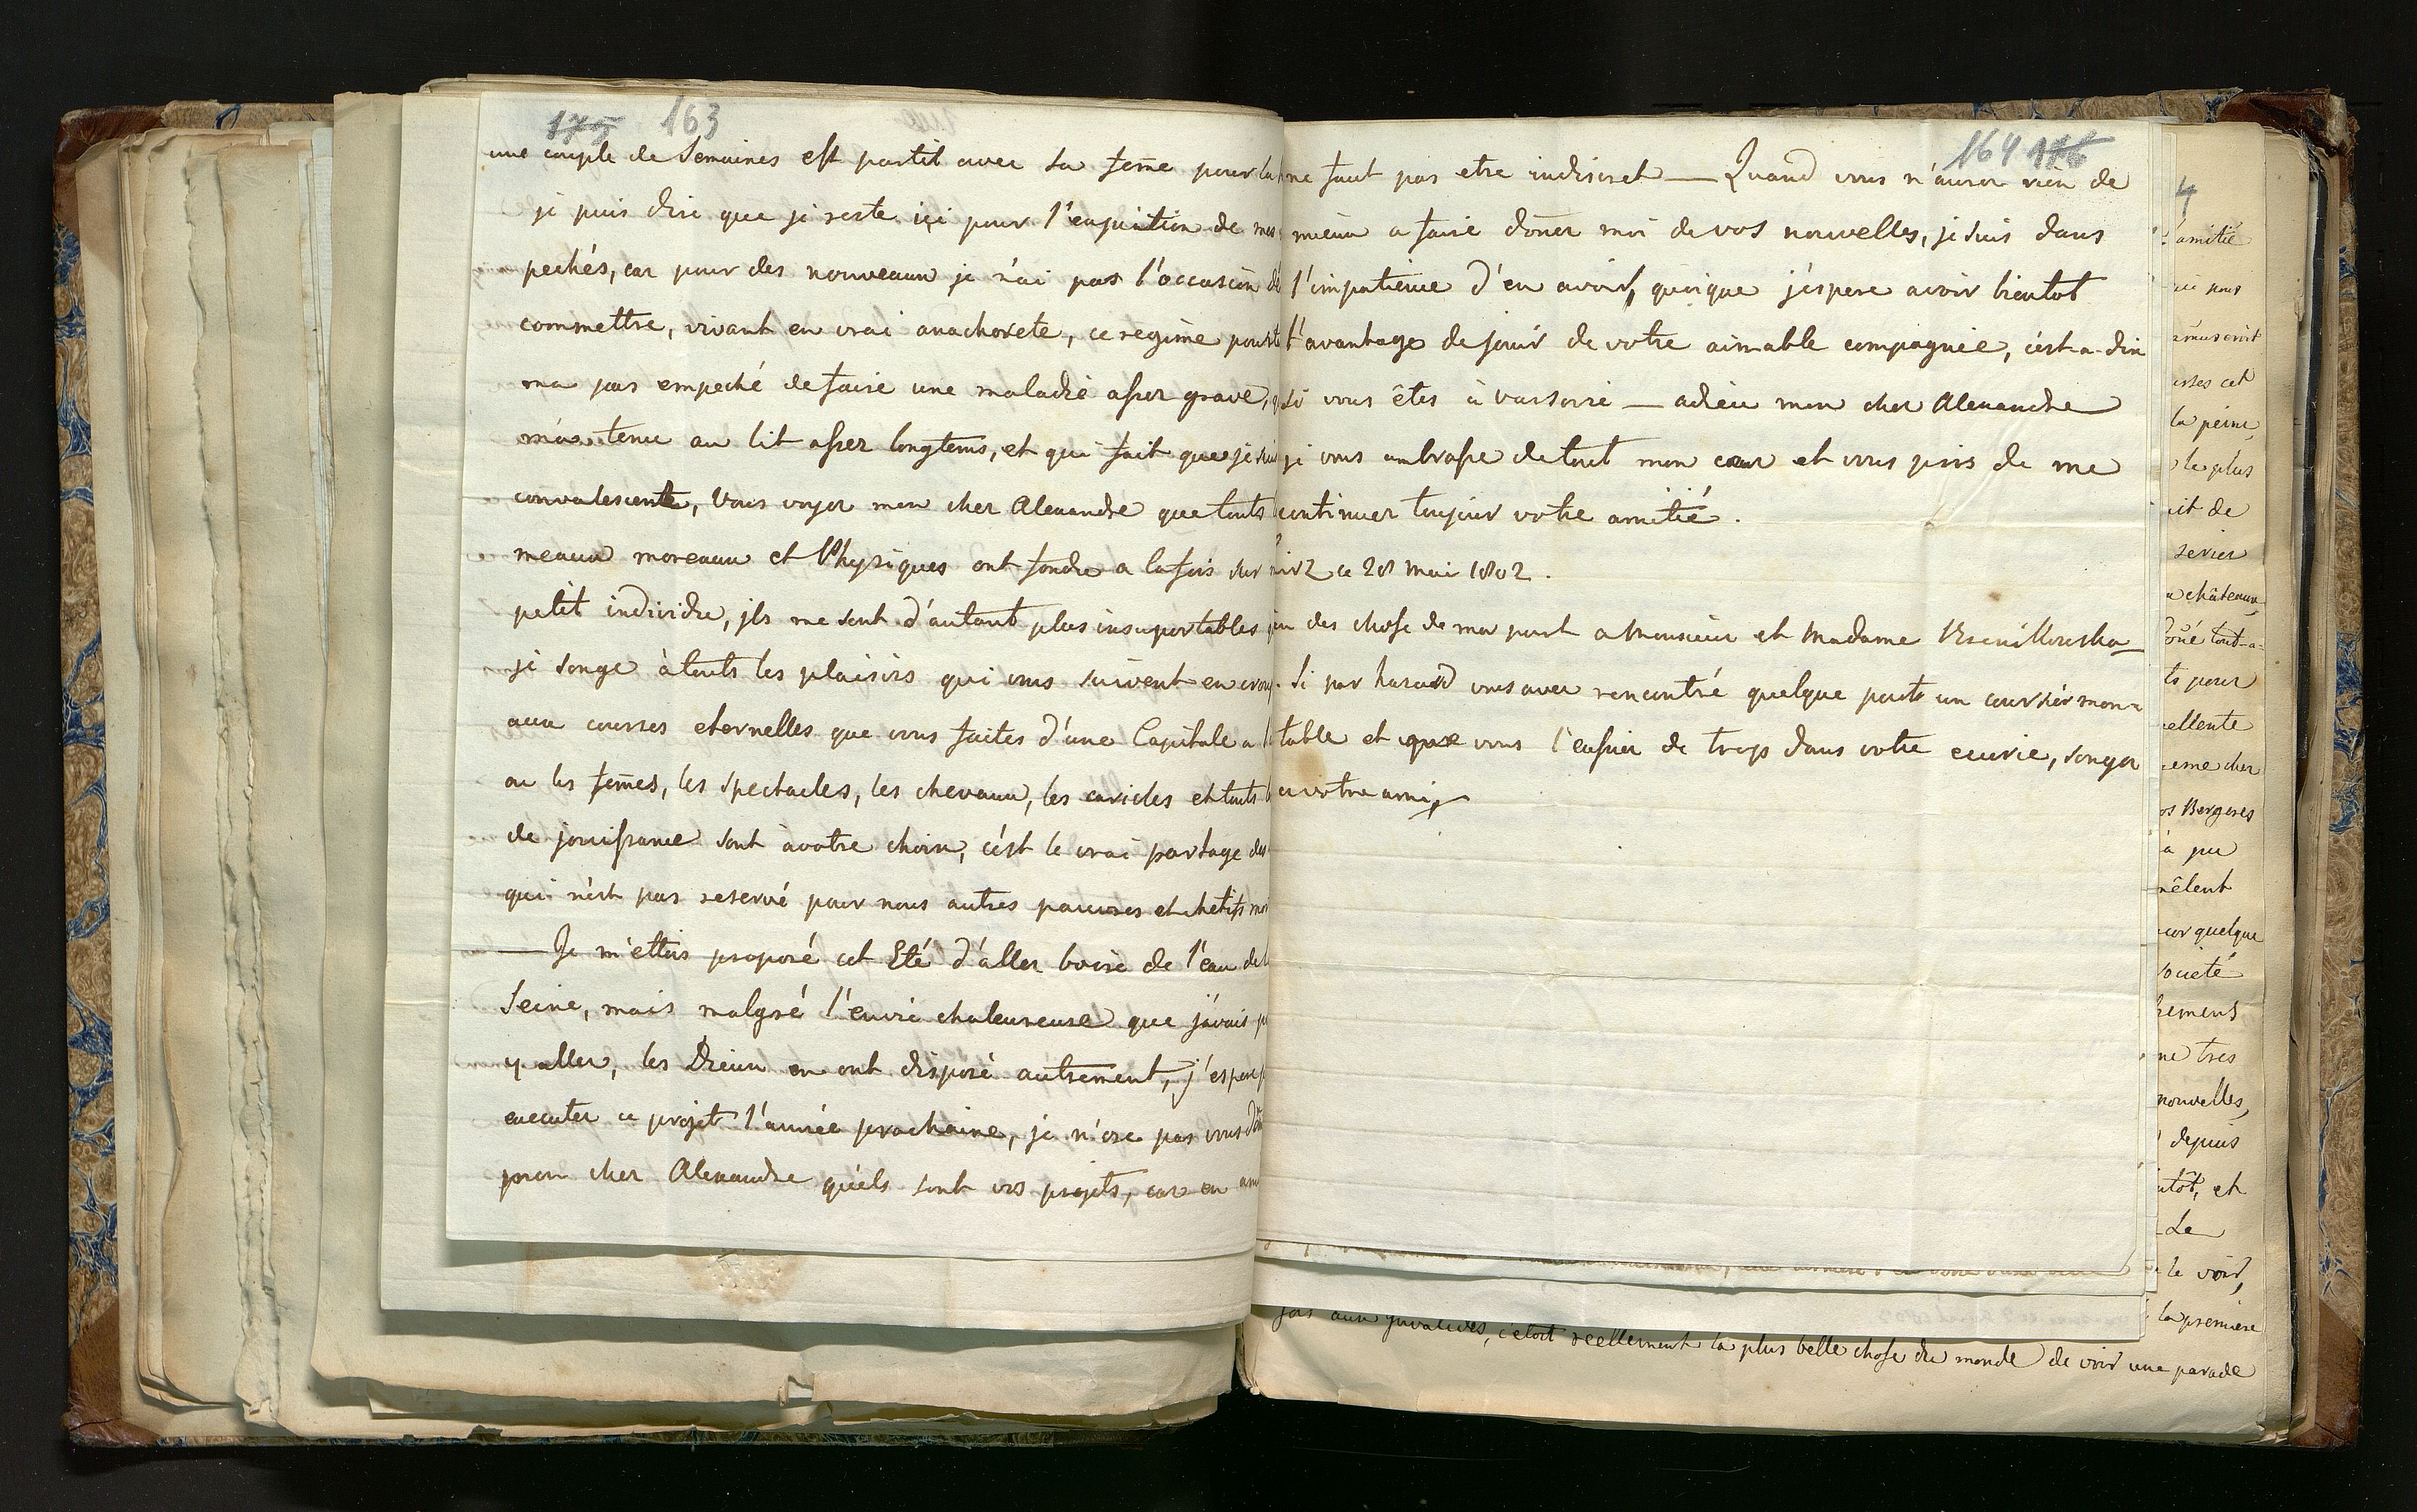 175 163
une couple de Semaines est partit avec sa feme pour la
je puis dire que je reste içi pour l'expiation de mes
pechés, car pour des nouveaux je n'ai pas l'occasion de
commettre, vivant en vrai anachorete, ce regime pourt
ma pas empeché de faire une maladie assez grave,
m'as tenu au lit assez longtems, et qui fait que je suis
convalescente, Vous voyez mon cher Alexandre que touts
meaux moreaux et Physiques ont fondre a la fois sur
petit individre, jls me sont d'autant plus insuportables
je songe à touts les plaisirs qui vous suivent en croup
aux courses eternelles que vous faites d'une Capitale a l
ou les femes, les spectacles, les chevaux, les caricles et touts
de jouissance sont à votre choix, c'est le vrai partage des
qui n'est pas reservé pour nous autres pauvres et chetifs mor
— Je m'ettois proposé cet Eté d'aller boire de l'eau de l
Seine, mais malgré l'envie chaleureuse que j'avais p
y aller, les Dieux en ont disposé autrement, j'espere p
executer ce projet l'année prochaine, je n'ose pas vous
mon cher Alexandre quels sont vos projets, car en am
164 176
ne faut pas etre indiscret — Quand vous n'aurez rien de
mieux a faire doner moi de vos nouvelles, je suis dans
l'impatience d'en avoir, quoique j'espere avoir bientot
l'avantage de jouir de votre aimable compagnie, c'est-a-dire
si vous êtes à varsovie — adieu mon cher Alexandre
je vous ambrasse de tout mon cœur et vous pris de me
continuer toujour votre amitié.
ce 28 Mai 1802.
des chose de ma part a Monsieur et Madame
Si par hazard vous avez rencontré quelque part un coursier mon-
table et que vous l'eussier de trop dans votre ecurie, songer
a votre ami
4
l'amitié
pas
amuseroit
urses cet
la peine,
le plus
it de
serier
châteaux,
tout-a-
ts pour
cellente
eme cher
os Bergeres
à pu
mêlent
cor quelque
societé
hemens
ne tres
nouvelles,
depuis
tôt, et
de
le voir,
la premiere
aux jnvalides, c'etoit reellement la plus belle chose du monde de voir une parade